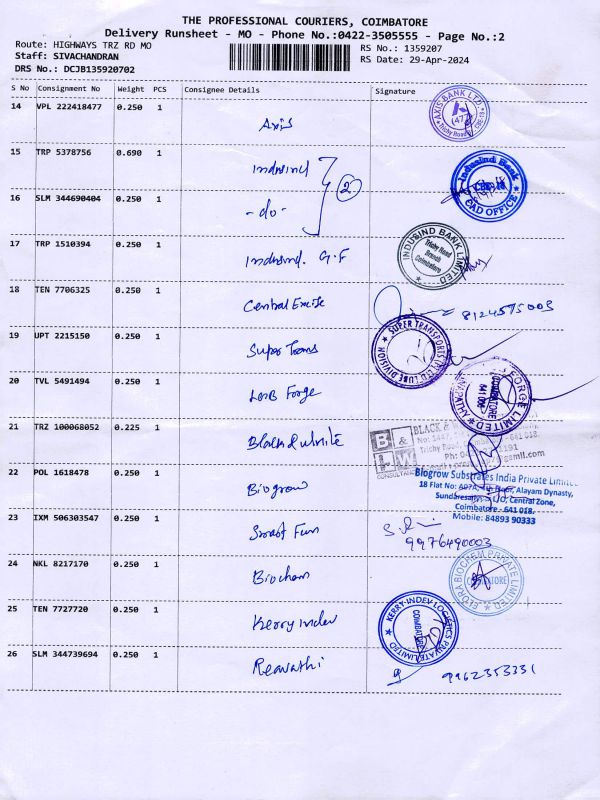 THE PROFESSIONAL COURIERS, COIMBATORE
Delivery Runsheet - MO - Phone No.:0422-3505555 - Page No.:2
Route: HIGHWAYS TRZ RD MO
RS No.: 1359207
Staff: SIVACHANDRAN
RS Date: 29-Apr-2024
DRS No.: DCJB135920702
S No Consignment No Weight PCS Consignee Details Signature
14 VPL 222418477 0.250 1 Axis
AXIS BANK LTD.
Trichy Road
15 TRP 5378756 0.690 1 Indusind
2
IndusInd Bank
CAD OFFICE
16 SLM 344690404 0.250 1 -do-
17 TRP 1510394 0.250 1 Indusind. G.F
INDUSIND BANK LIMITED
Trichy Road
Branch
Coimbatore
18 TEN 7706325 0.250 1 Central Excise 8124575003
19 UPT 2215150 0.250 1 Super Trans
SUPER TRANSPORTS
LUBE DIVISION
20 TVL 5491494 0.250 1 Forge
FORGE LIMITED
COIMBATORE
21 TRZ 100068052 0.225 1 Black & White
B & W
CONSULTANT
BLACK &
Trichy Road,
22 POL 1618478 0.250 1 Biogrow
Biogrow Substrates India Private Limited
18 Flat No: 607A, Floor, Alayam Dynasty,
Central Zone,
Coimbatore - 641 018.
Mobile: 84893 90333
23 IXM 506303547 0.250 1 Smart Fun
9976490003
24 NKL 8217170 0.250 1 Biochem
BIOCHEM PRIVATE LIMITED
COIMBATORE
25 TEN 7727720 0.250 1 Kerry Indev
KERRY-INDEV LOGISTICS PRIVATE LIMITED
COIMBATORE
26 SLM 344739694 0.250 1 Revathi 9962353331